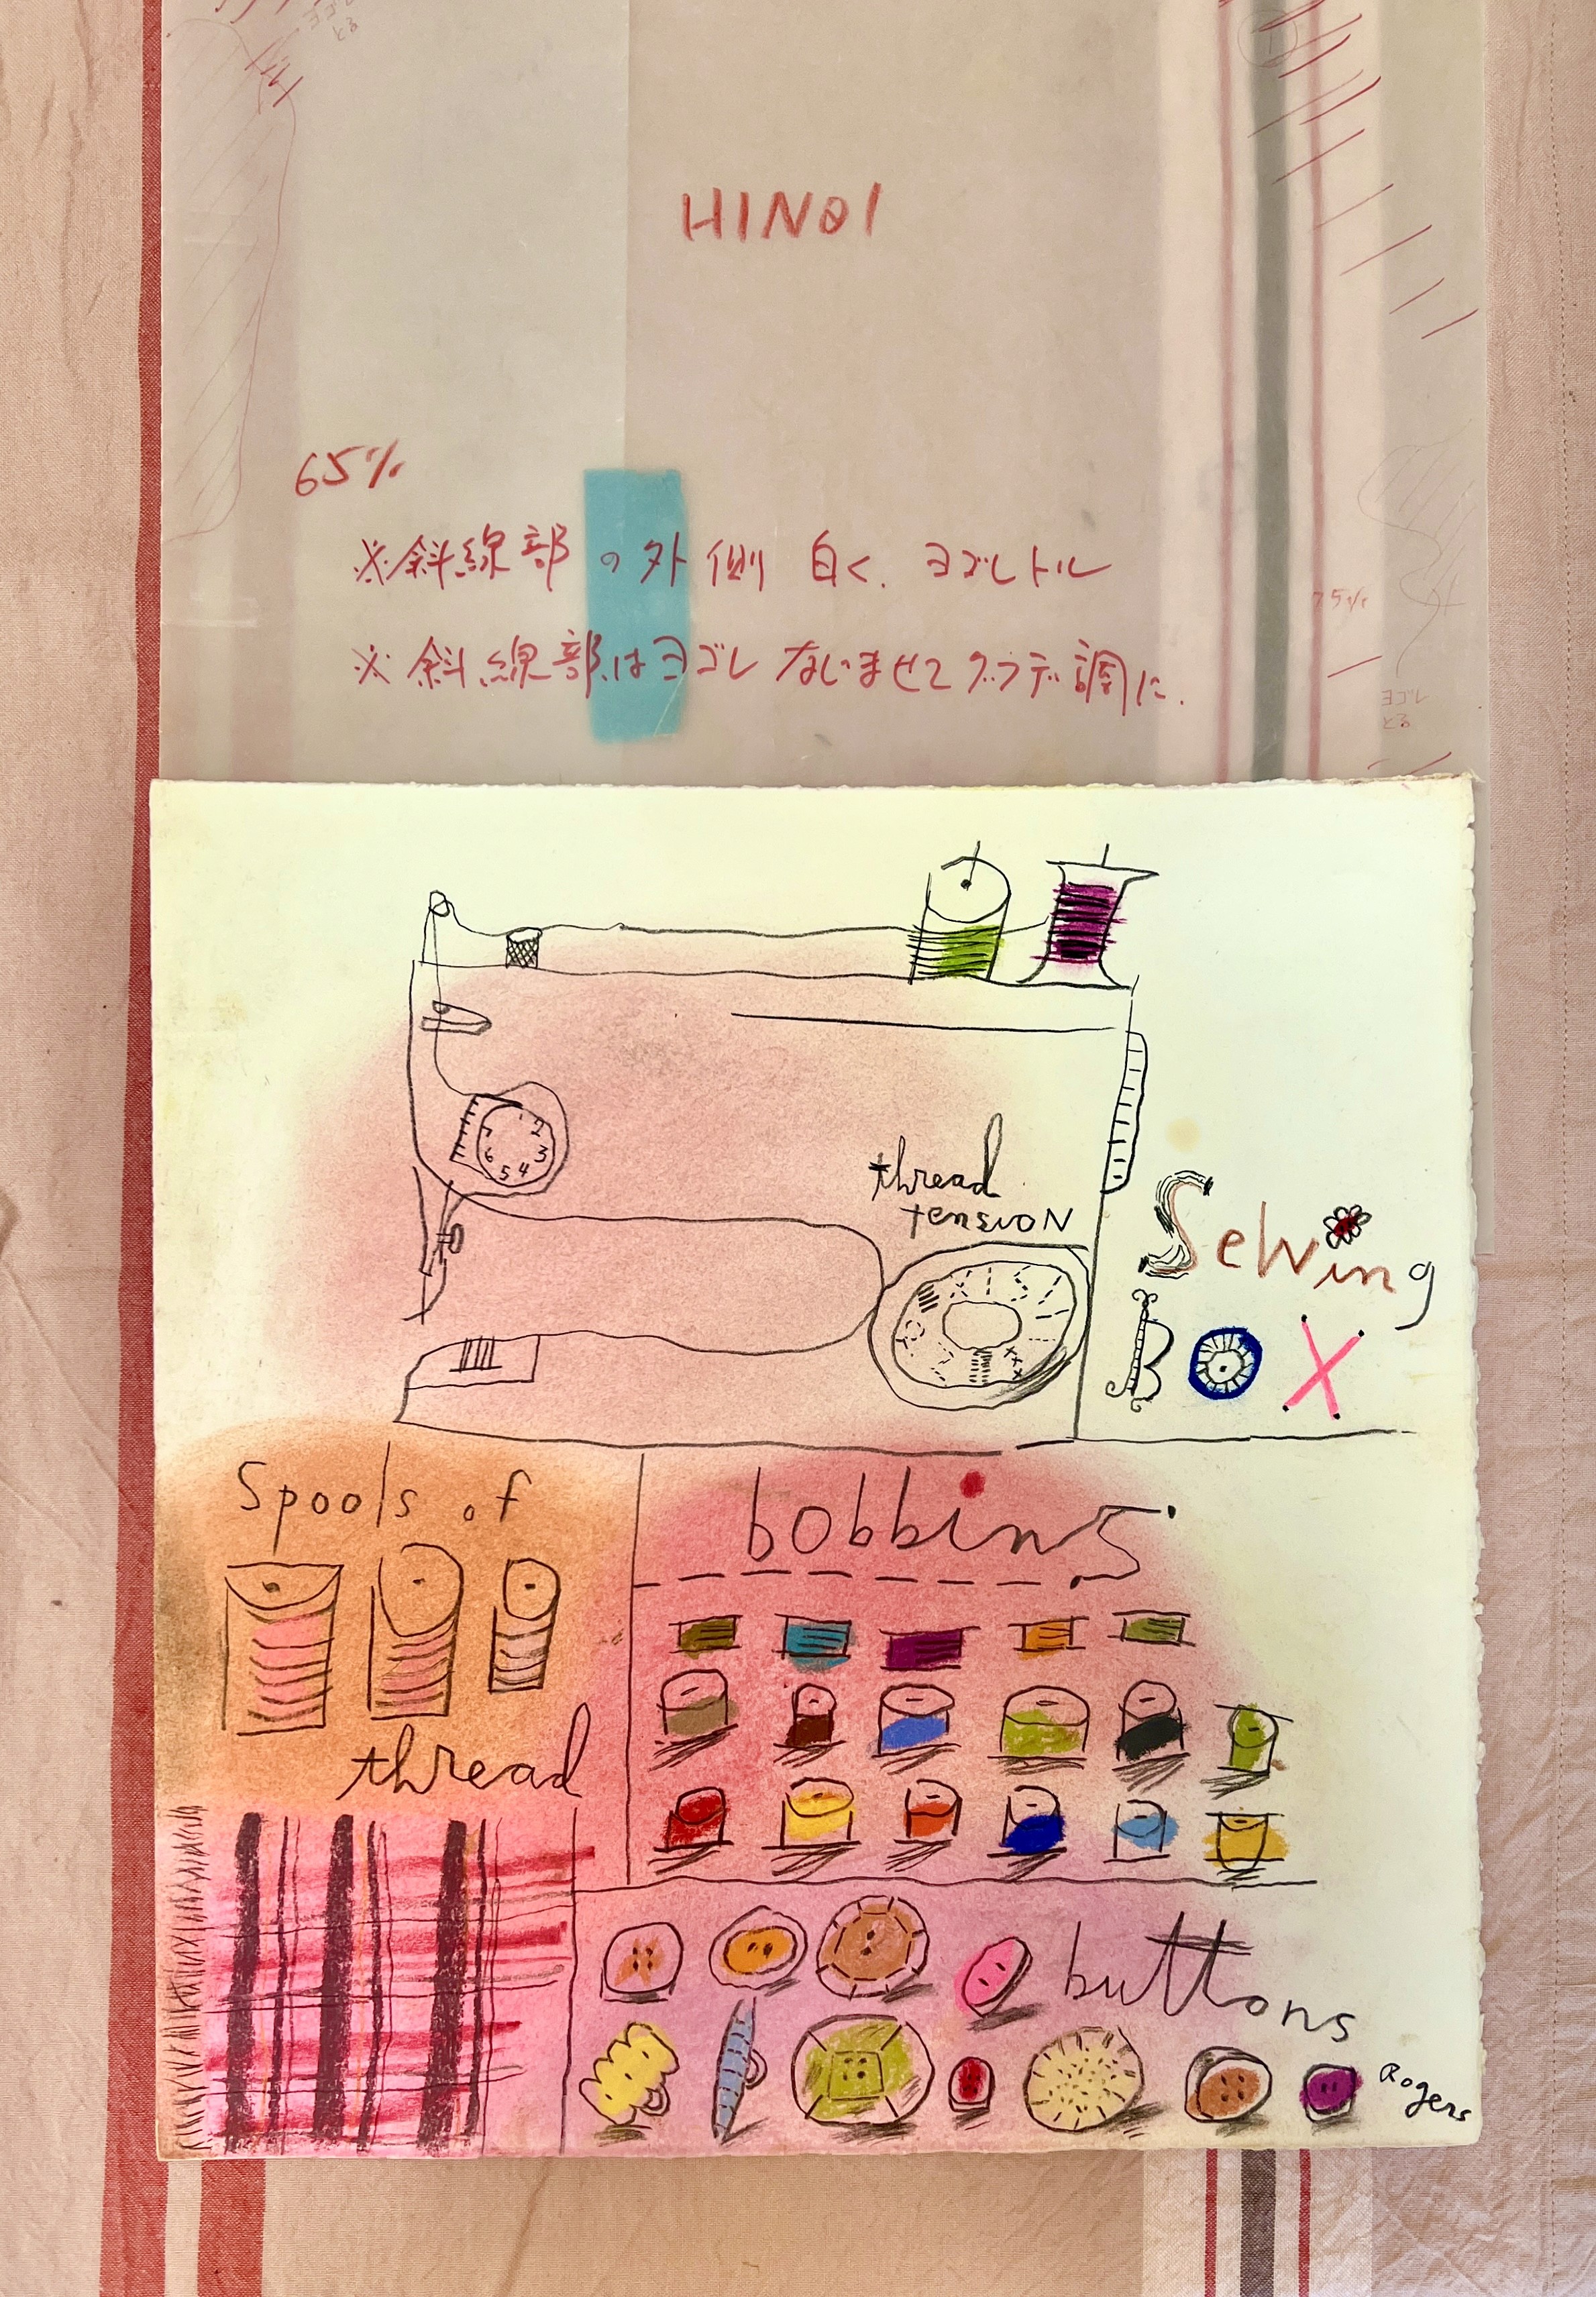 ヨゴレ
とる
HINO1
65%
※斜線部の外側 白く、ヨゴレトル
※斜線部はヨゴレなじませてグラデ調に.
75%
ヨゴレ
とる
2
3
4
5
6
7
thread
tension
Sewing
BOX
Spools of
thread
bobbins
buttons
Rogers